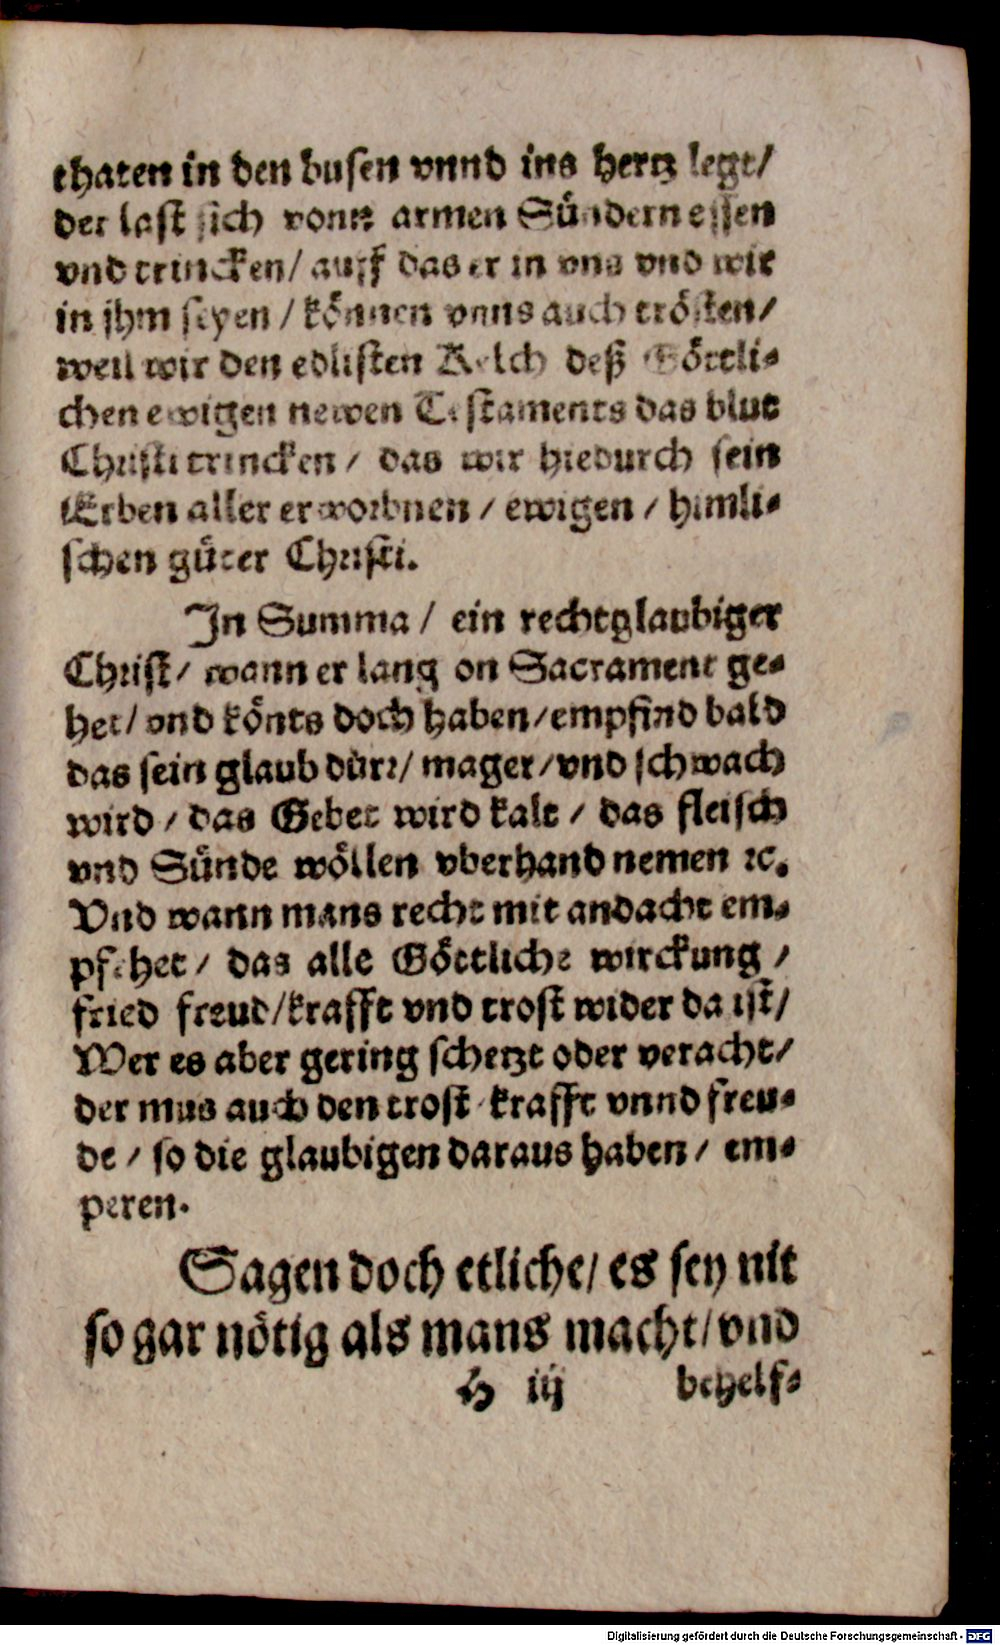 thaten in den busen vnnd ins hertz legt/
der last sich vonn armen Sündern essen
vnd trincken/ auff das er in vns vnd wir
in jhm seyen / können vnns auch trösten/
weil wir den edlisten Kelch deß Göttli-
chen ewigen newen Testaments das blut
Christi trincken / das wir hiedurch sein
Erben aller erworbnen / ewigen / himli-
schen güter Christi.
In Summa / ein rechtglaubiger
Christ/ wann er lang on Sacrament ge-
het/ vnd könts doch haben/ empfind bald
das sein glaub dürr/ mager/ vnd schwach
wird / das Gebet wird kalt / das fleisch
vnd Sünde wöllen vberhand nemen ꝛc.
Vnd wann mans recht mit andacht em-
pfehet / das alle Göttliche wirckung /
fried freud/ krafft vnd trost wider da ist/
Wer es aber gering schetzt oder veracht/
der mus auch den trost krafft vnnd freu-
de / so die glaubigen daraus haben / em-
peren.
Sagen doch etliche/ es sey nit
so gar nötig als mans macht/ vnd
H iij behelf-
Digitalisierung gefördert durch die Deutsche Forschungsgemeinschaft - DFG